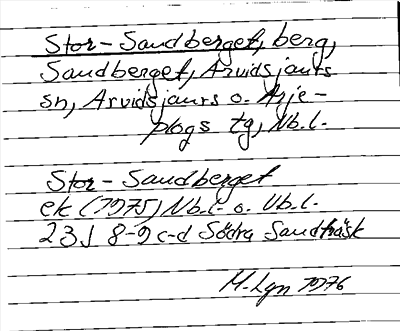 Stor-Sandberget, berg,
Sandberget, Arvidsjaurs
sn, Arvidsjaurs o. Arje-
plogs tg, Nb.l.
Stor-Sandberget
ek (1975) Nb.l. o. Vb.l.
23J 8-9 c-d Södra Sandträsk
M. Lgn 1976